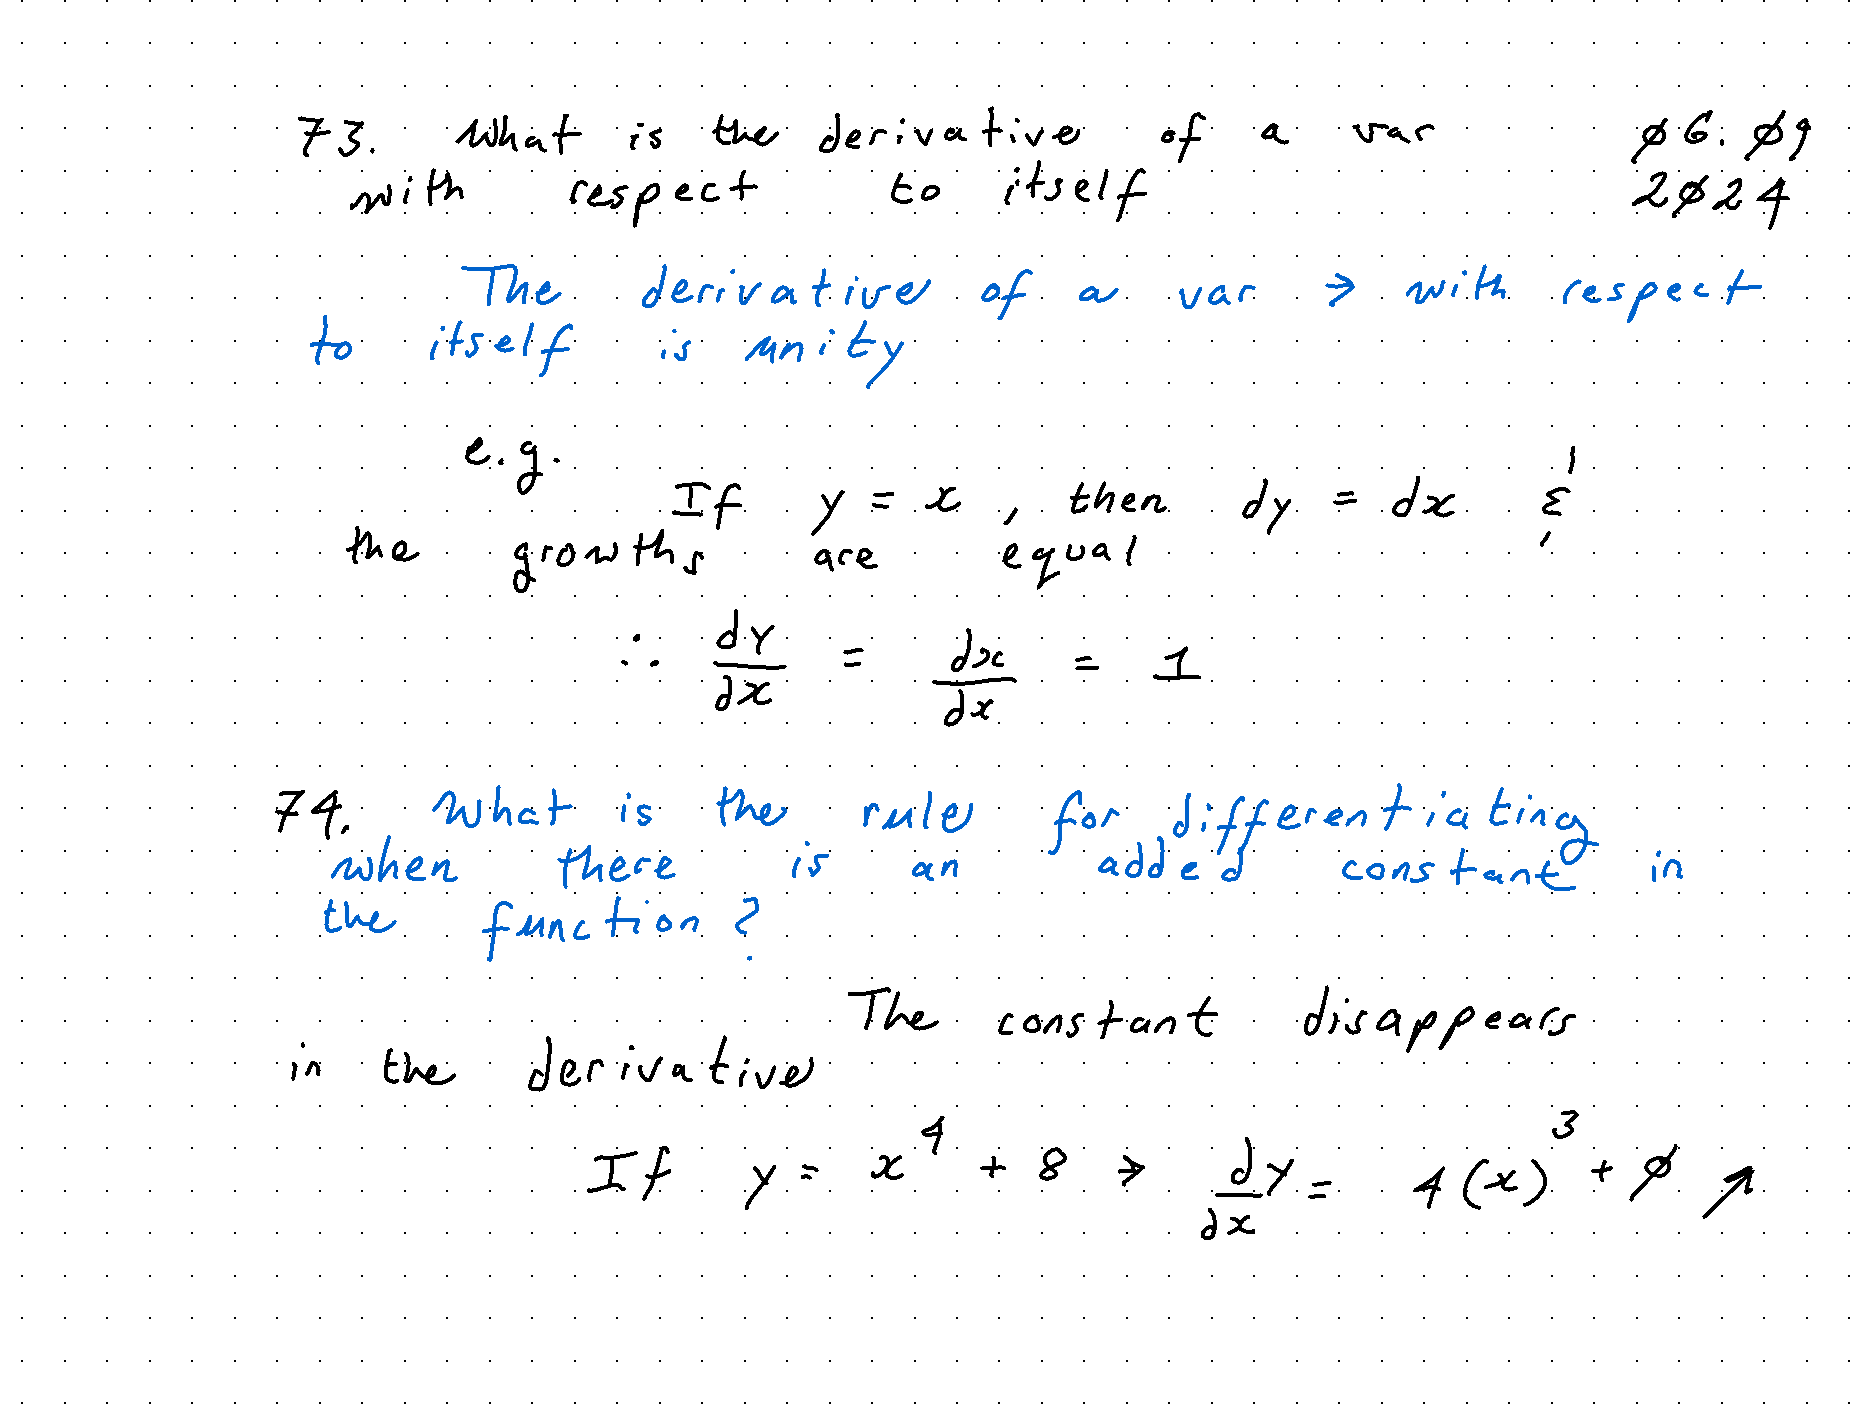 73. What is the derivative of a var 06.09
with respect to itself 2024
The derivative of a var → with respect
to itself is unity
e.g.
If y = x , then dy = dx &
the growths are equal
∴ dy/dx = dx/dx = 1
74. What is the rule for differentiating
when there is an added constant in
the function?
The constant disappears
in the derivative
If y = x⁴ + 8 → dy/dx = 4(x)³ + 0 ↗